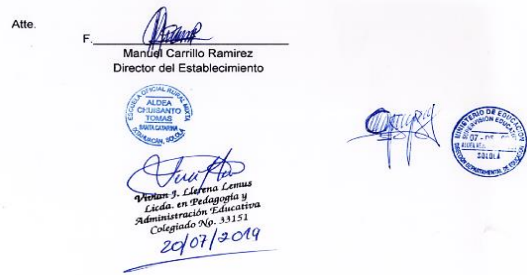 Atte.
F.
Manuel Carrillo Ramirez
Director del Establecimiento
ESCUELA OFICIAL RURAL MIXTA
ALDEA
CHUISANTO
TOMAS
SANTA CATARINA
SOLOLÁ
MINISTERIO DE EDUCACION
SUPERVISIÓN EDUCATIVA
07 -
SOLOLA
DIRECCIÓN DEPARTAMENTAL DE EDUCACION
Vivian J. Llerena Lemus
Licda. en Pedagogía y
Administración Educativa
Colegiado No. 33151
20/07/2019